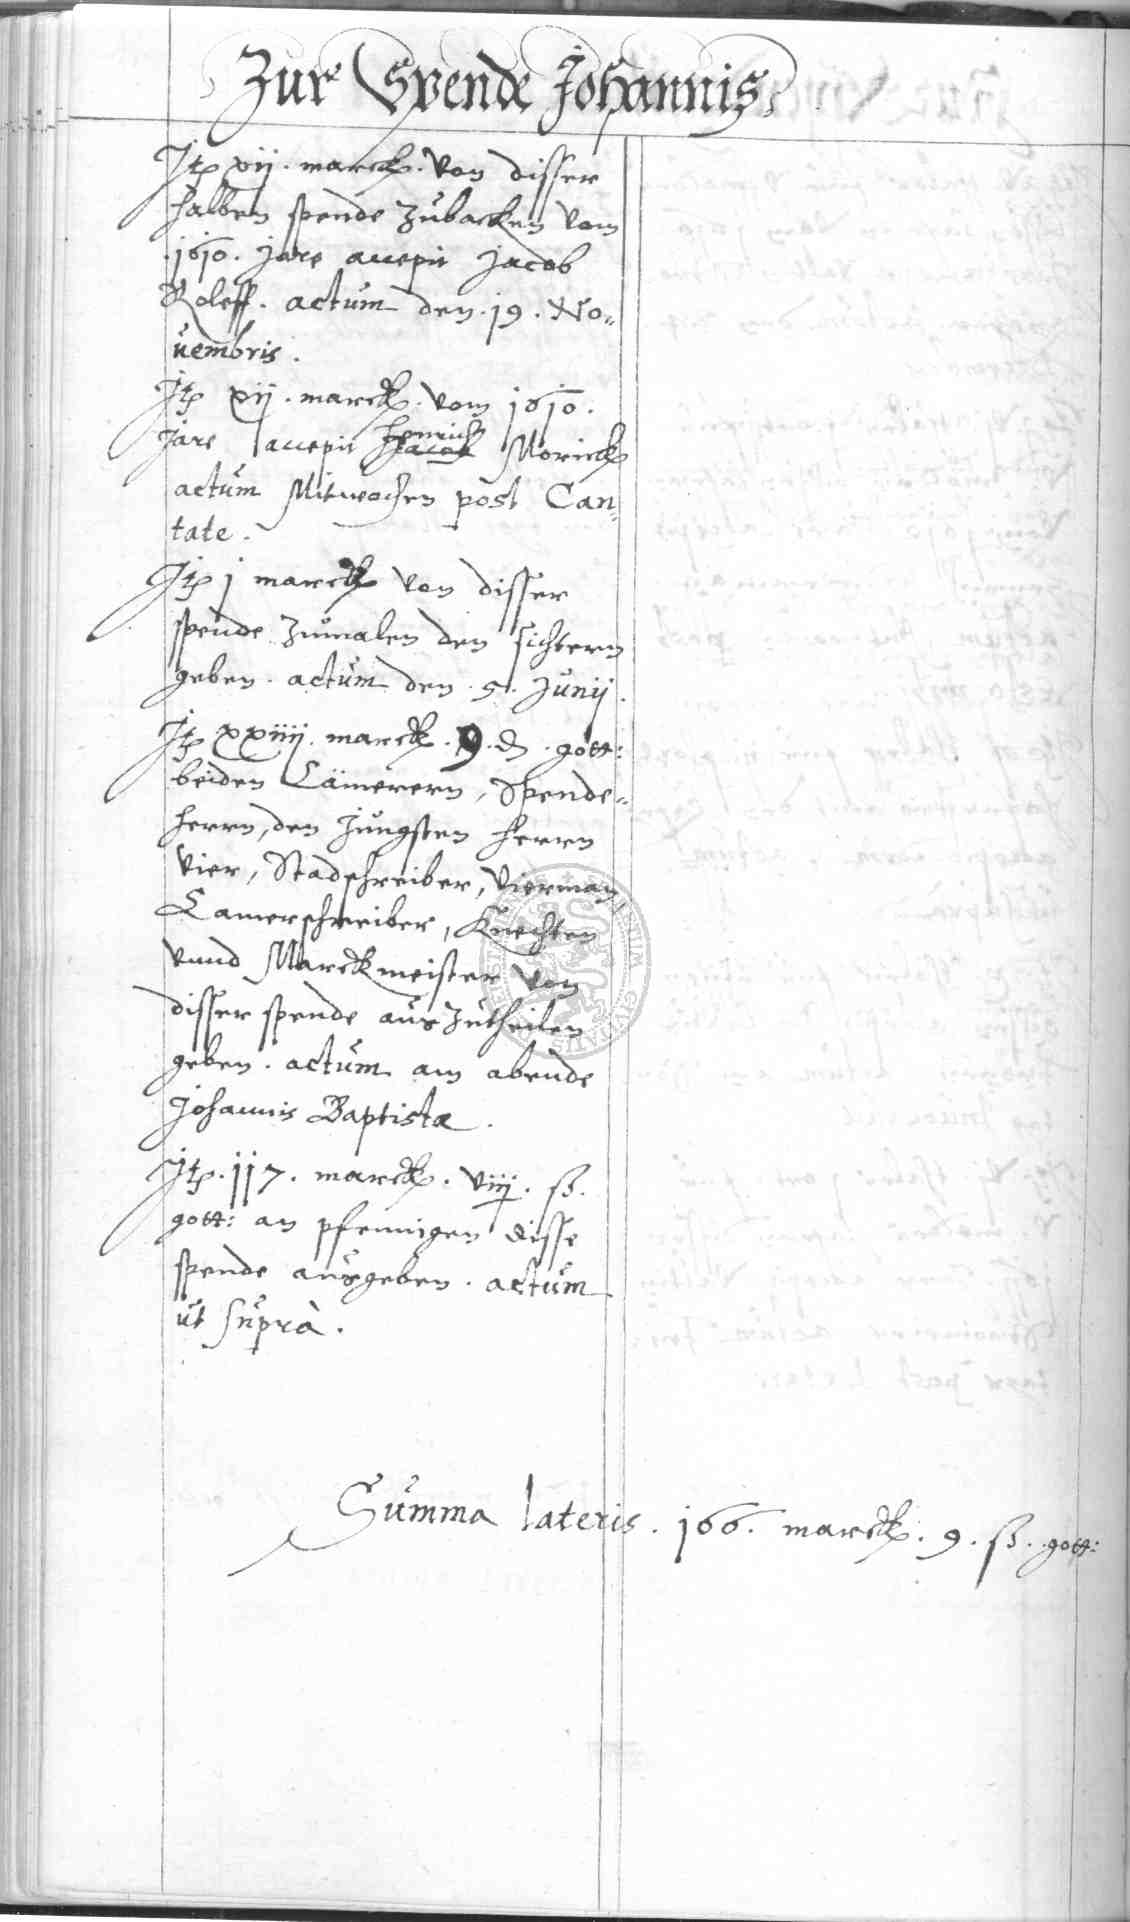 Zur Spende Johannis
Jtem xij. marck. von disser
halben spende zubacken vom
.1610. jare accepit Jacob
Roleff. actum den .19. No-
uembris.
Jtem xij. marck. vom 1610.
Jare accepit Henrich Morick
actum Mitwochen post Can-
tate.
Jtem j marck von disser
spende zumalen den sichtern
geben. actum den .5. Junij.
Jtem xxiiij. marck. 9. d. gott:
beiden Cämerern, Spende-
herrn, den Jungsten herrn
vier, Stadschreiber, vierman,
Camerschreiber, Knechten
vnnd Marckmeister von
disser spende auszutheilen
geben. actum am abende
Johannis Baptistæ.
Jtem .117. marck. viij. ß.
gott: an pfennigen disse
spende ausgeben. actum
ut suprà.
Summa lateris. 166. marck. 9. ß. gott: